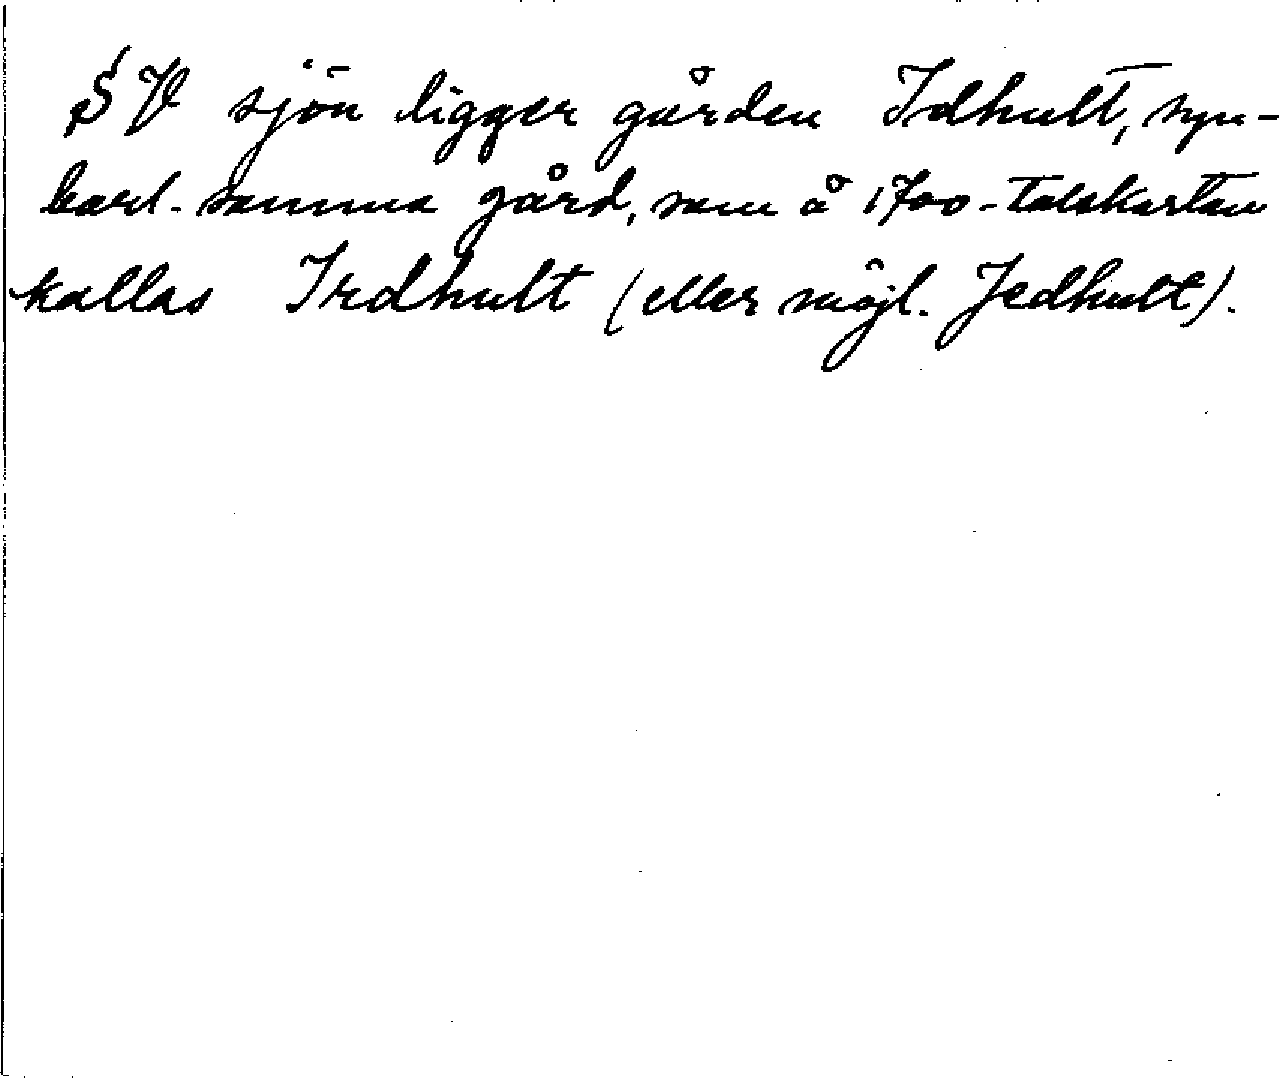 S V sjön ligger gården Idhult, syn-
barl. samma gård, som å 1700-talskartan
kallas Irdhult (eller möjl. Jedhult).